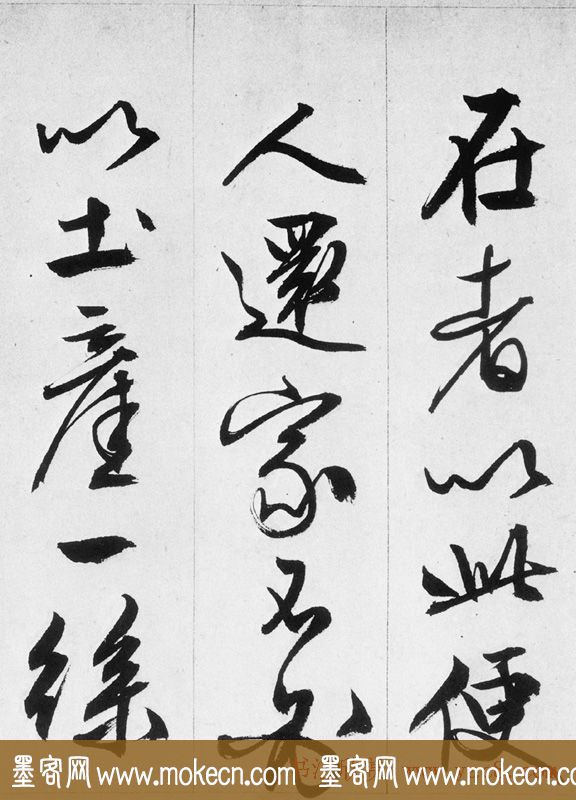 在者以此便
人還家不
以土產一
墨客网 www.mokecn.com 墨客网 www.mokecn.com